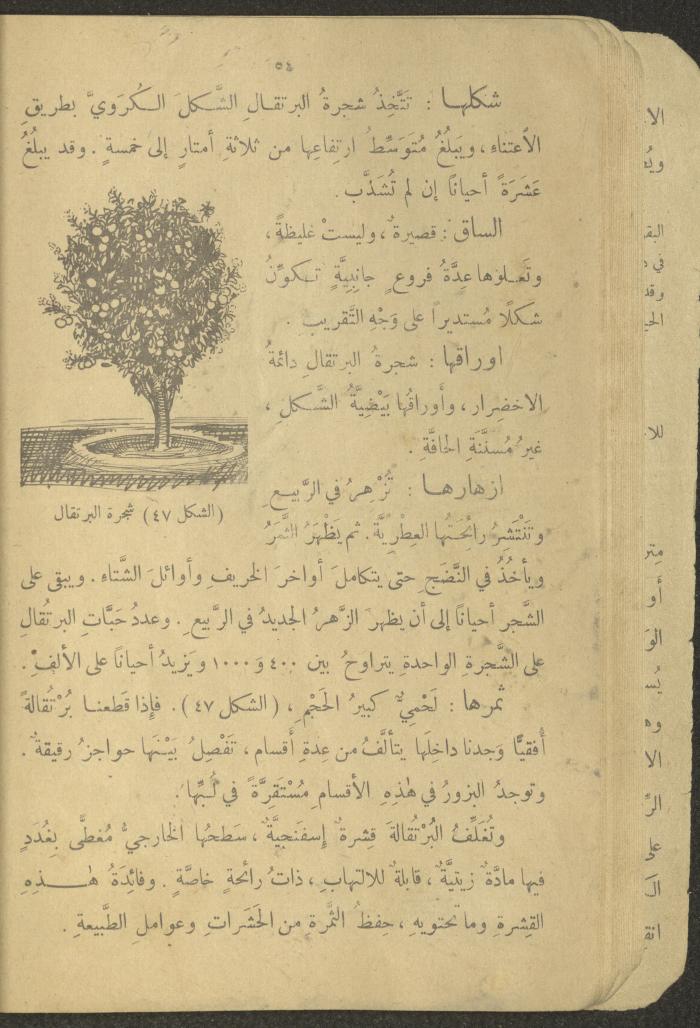 ٥٤
شكلها : تَتَّخِذُ شجرةُ البرتقالِ الشَّكلَ الكُرَوِيَّ بطريقِ
الأعتناءِ ، ويَبلُغُ مُتَوَسِّطُ ارتفاعِها من ثلاثةِ أمتارٍ إلى خمسةٍ . وقد يبلُغُ
عَشَرَةً أحياناً إن لم تُشَذَّب .
الساق : قصيرةٌ ، وليستْ غليظةً ،
وتَعلوها عِدَّةُ فروعٍ جانبيَّةٍ تكوِّنُ
شكلًا مُستديراً على وَجْهِ التَّقريبِ .
اوراقها : شجرةُ البرتقالِ دائمةُ
الاخضِرار ، وأوراقُها بَيْضِيَّةُ الشَّكلِ ،
غيرُ مُسنَّنَةِ الحافَّةِ .
ازهارها : تُزْهِرُ في الرَّبيعِ
وتَنْتَشِرُ رائِحَتُها العِطْرِيَّةُ . ثم يَظْهَرُ الثَّمَرُ
(الشكل ٤٧) شجرة البرتقال
ويأخُذُ في النَّضَجِ حتى يتكاملَ أواخرَ الخريفِ وأوائلَ الشَّتاءِ . ويبقى على
الشَّجر أحياناً إلى أن يظهرَ الزَّهرُ الجديدُ في الرَّبيعِ . وعددُ حَبَّاتِ البرتُقالِ
على الشَّجرةِ الواحدةِ يتراوحُ بين ٤٠٠ وَ ١٠٠٠ ويَزيدُ أحياناً على الألفِ .
ثمرها : لَحْمِيٌّ كبيرُ الحَجْمِ ، (الشكل ٤٧) . فإِذا قَطعنا بُرْتُقالةً
أُفقيًّا وَجدنا داخِلَها يتألَّفُ من عِدةِ أقسام ، تَفْصِلُ بَيْنَها حواجزُ رقيقةٌ .
وتوجدُ البزورُ في هٰذِهِ الأقسامِ مُسْتَقِرَّةً في لُبِّها .
وتُغَلِّفُ البُرْتُقالةَ قِشرةٌ إسفَنجيَّةٌ ، سَطحُها الخارجيُّ مُغطًّى بِغُدَدٍ
فيها مادَّةٌ زيتيَّةٌ ، قابلةٌ للالتهابِ ، ذاتُ رائحةٍ خاصَّةٍ . وفائِدَةُ هٰـذِهِ
القِشرةِ وما تحتويهِ ، حِفظُ الثَّمرةِ من الحَشَراتِ وعواملِ الطَّبيعةِ .